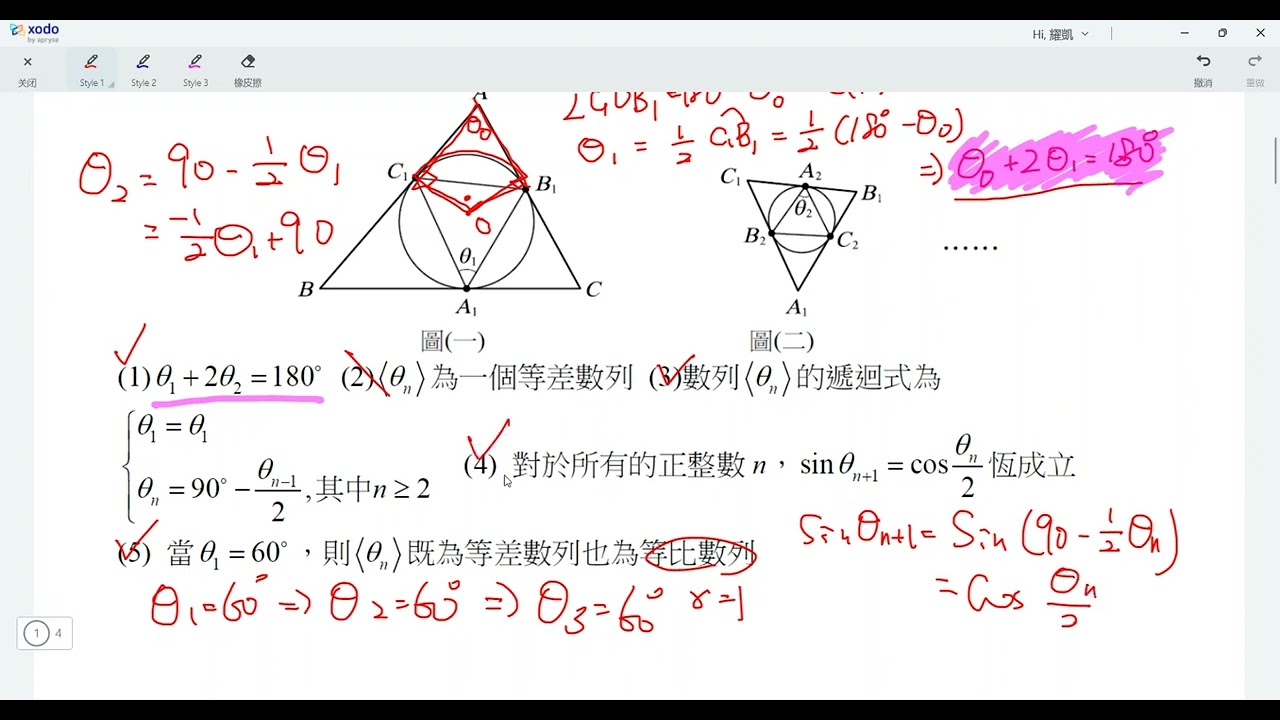 xodo
by apryse
Hi, 耀凱
关闭
Style 1
Style 2
Style 3
橡皮擦
撤消
重做
θ₂ = 90 - 1/2 θ₁
= -1/2 θ₁ + 90
θ₁ = 1/2 C₁B₁ = 1/2 (180° - θ₀)
⇒ θ₀ + 2θ₁ = 180°
A
θ₀
C₁
B₁
O
θ₁
B
A₁
C
C₁
A₂
B₁
θ₂
B₂
C₂
A₁
……
圖(一)
圖(二)
(1) θ₁ + 2θ₂ = 180° (2)⟨θₙ⟩為一個等差數列 (3)數列⟨θₙ⟩的遞迴式為
θ₁ = θ₁
θₙ = 90° - θₙ₋₁/2 , 其中n ≥ 2
(4) 對於所有的正整數 n，sin θₙ₊₁ = cos θₙ/2 恆成立
(5) 當 θ₁ = 60°，則⟨θₙ⟩既為等差數列也為等比數列
Sin θn+1 = Sin (90 - 1/2 θn)
= Cos θn/2
θ₁ = 60° ⇒ θ₂ = 60° ⇒ θ₃ = 60° r = 1
1 4